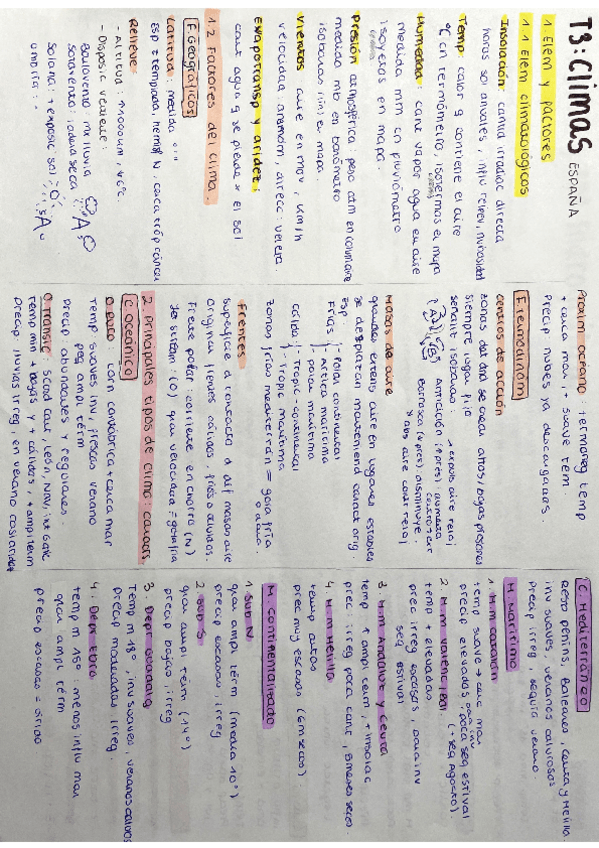 T3: CLIMAS ESPAÑA
1 Elem y factores
1.1 Elem climatológicos
Insolación: cantida irradiac directa
horas sol anuales, influ relieve, nubosidad
Temp: calor q contiene el aire
ºC en termómetro, isotermas en mapa
Humedad: cant vapor agua en aire
medida mm en pluviómetro
isoyetas en mapa.
Presión atmosférica: peso atm en columna aire
medido mb en barómetro
isobaras en mapa.
Vientos aire en mov, km/h
velocidad anemóm, direcc: veleta.
Evapotransp y aridez:
cant agua q se pierde x el sol
1.2 Factores del clima.
F. Geográficos
Latitud: medida º ' "
Esp = templada, hemisf N,
Relieve:
- Altitud
- Disposic vertiente:
Barlovento mx lluvia
Sotavento: ladera seca
Solana: + exposic sol
umbría: -
Proxim océano: termoreg temp
+ cerca mar, + suave tem
Precip nubes ya descargadas.
F. Termodinám
Centros de acción
zonas del atm se crean altas/bajas presiones
siempre lugar fijo
Anticiclón (↑pres) aumenta
Borrasca (↓pres) disminuye.
Masas de aire
grandes extens aire en lugares estables
se desplazan manteniend caract orig.
Esp:
Frías
- Polar continental
- Ártica marítima
- Polar marítima
cálida
- Tropic continental
- Tropic marítima
zonas frías mediterrán = gota fría
Frentes
superficie d contacto d dif masas aire
originan frentes cálidos, fríos o oclusos.
Frente polar: corriente en chorro (N)
Jet stream: (O) gran velocidad = gota fría
2. Principales tipos de clima: caracts
C. Oceánico
O. puro: corn cantábrica + cerca mar
Temp suaves inv, frescas verano
peq ampl térm
Precip abundantes y regulares.
O. transic: S cord cant, León, Nav, int Galic
Temp min + bajas y + cálidas, + ampl term
Precip lluvias irreg, en verano
C. Mediterráneo
Resto peníns, Baleares, Ceuta y Melilla.
inv suaves, veranos calurosos
Precip irreg sequía verano.
M Marítimo
1. M.m catalán
temp suave → cerca mar
precip elevadas, poca seq estival
2 M.m valencian.
temp + elevadas
prec irreg escasas,
seq estival
3. M.m Andaluz y Ceuta
temp ↑ ampl term, + insolac
prec irreg poca cant, 5 meses secos.
4 M.m Melilla
temp altas
prec muy escasas (6m secos).
M. Continentalizado
1 Sub N
gran ampl térm (media 10º)
precip escasas, irreg
2. Sub S
gran ampl térm (14º)
precip bajas, irreg
3. Depr Guadalq
Temp m 18º, inv suaves, veranos calurosos
precip moderadas irreg.
4. Depr Ebro
temp m 15º: menos influ mar
gran ampl térm
precip escasas = árido